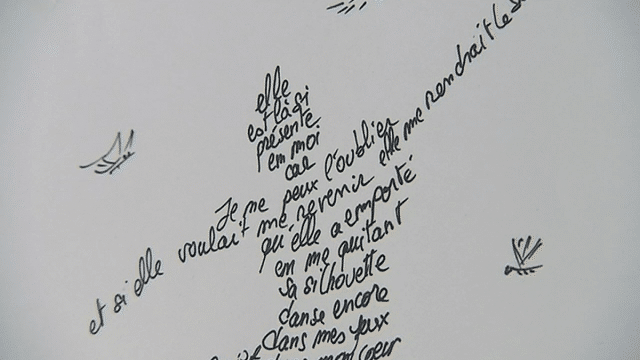 elle
est là si
présente
en moi
car
Je ne peux l'oublier
et si elle voulait me revenir elle me rendrait le
qu'elle a emporté
en me quitant
sa silhouette
danse encore
dans mes yeux
mon coeur